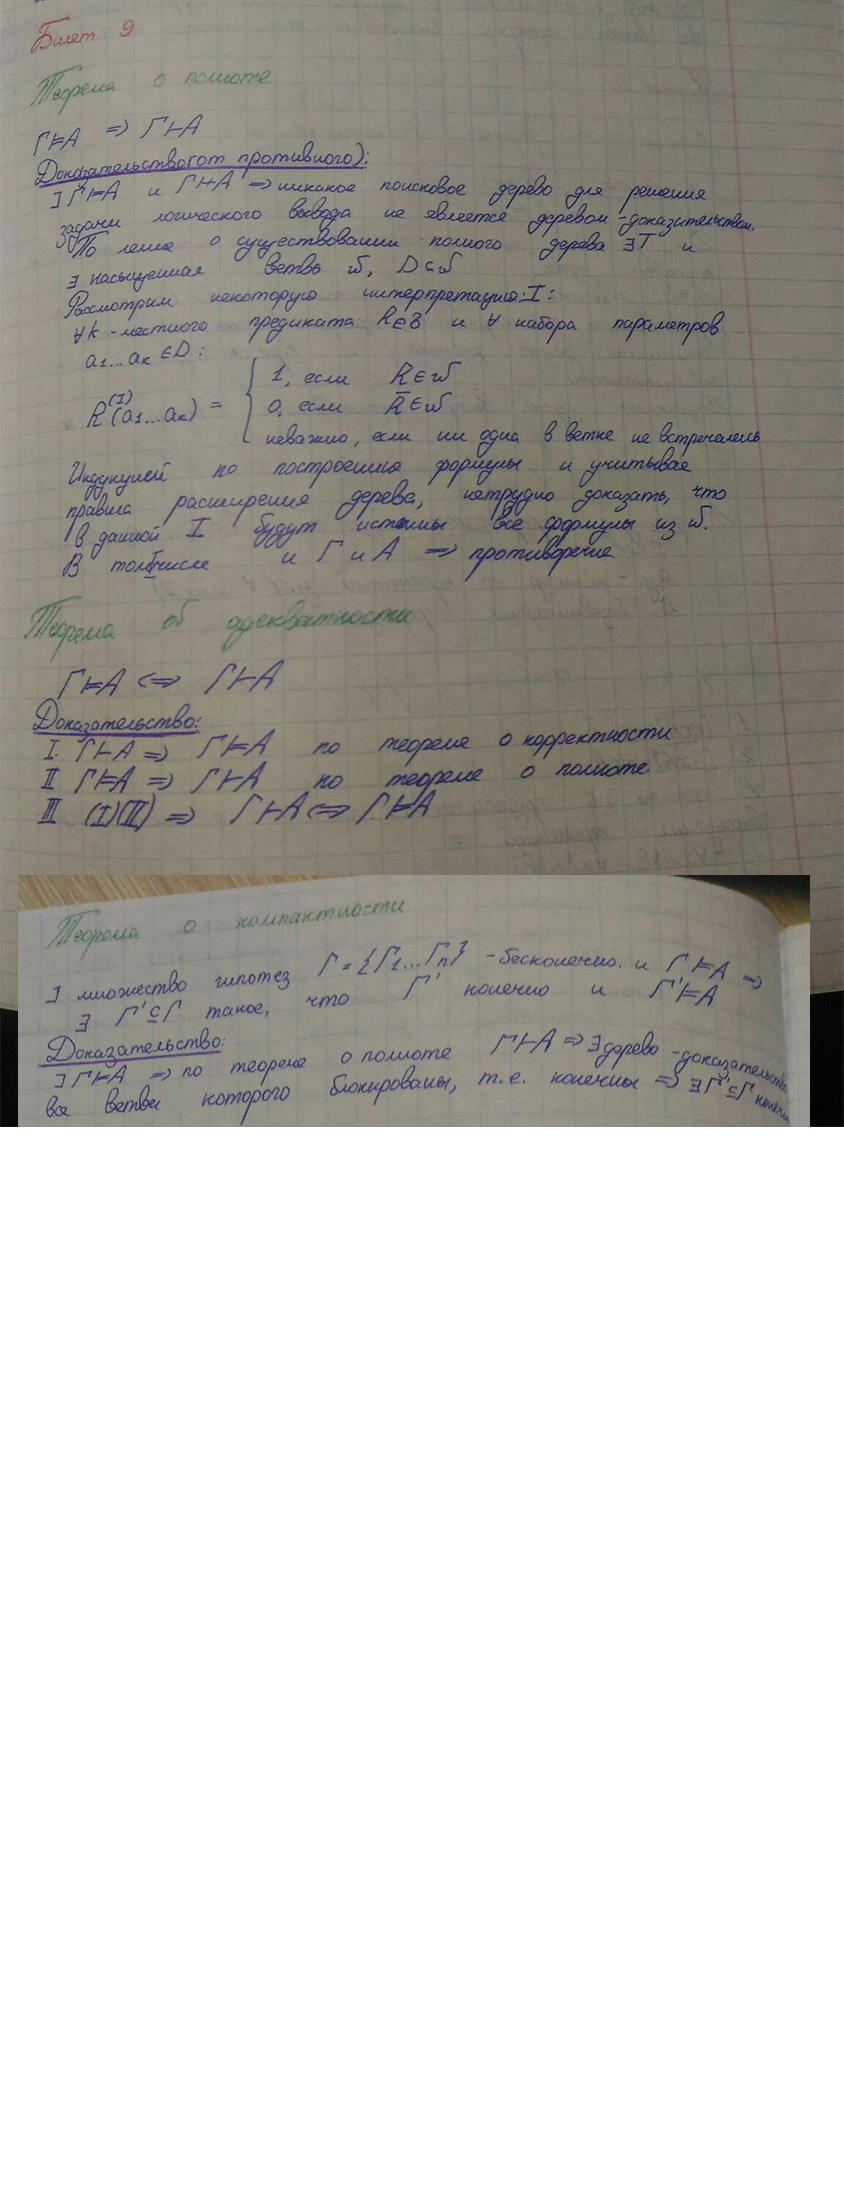 Билет 9
Теорема о полноте
Г⊨A ⇒ Г⊢A
Доказательство(от противного):
∃ Г⊨A и Г⊬A ⇒ никакое поисковое дерево для решения
задачи логического вывода не является деревом-доказательством.
По лемме о существовании полного дерева ∃T и
∃ насыщенная ветвь ω, D⊂ω
Рассмотрим некоторую интерпретацию I:
∀k-местного предиката R∈Б и ∀ набора параметров
a1...ак ∈D:
1, если R∈ω
R(I)(a1...ак) = 0, если R̅∈ω
неважно, если ни одна в ветке не встречались
Индукцией по построению формулы и учитывая
правила расширения дерева, нетрудно доказать, что
в данной I будут истины все формулы из ω.
В том числе и Г и A ⇒ противоречие
Теорема об адекватности
Г⊨A ⇔ Г⊢A
Доказательство:
I. Г⊢A ⇒ Г⊨A по теореме о корректности
II Г⊨A ⇒ Г⊢A по теореме о полноте.
III (I)(II) ⇒ Г⊢A ⇔ Г⊨A
Теорема о компактности
∃ множество гипотез Г={Г1...Гn} - бесконечно. и Г⊨A ⇒
∃ Г'⊆Г такое, что Г' конечно и Г'⊨A
Доказательство:
∃ Г⊨A ⇒ по теореме о полноте Г⊢A ⇒ ∃ дерево-доказательство
все ветви которого блокированы, т.е. конечны ⇒ ∃Г'⊆Г